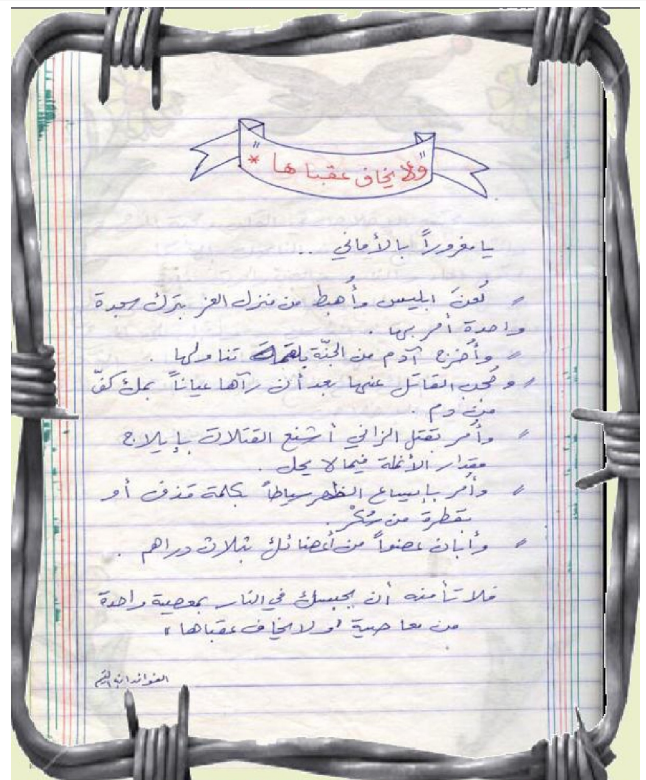 " ولا يخاف عقباها " *
يا مغروراً بالأماني ..
لُعنَ ابليس وأُهبط من منزل العز بترك سجدة
واحدة أُمر بها .
وأُخرج آدم من الجنّة بلقمة تناولها .
وحُجب القاتل عنها بعد أن رآها عياناً بملء كفّ
من دم .
وأُمر بقتل الزاني أشنع القتلات بإيلاج
مقدار الأنملة فيما لا يحل .
وأُمر بإيساع الظهر سياطاً بكلمة قذف أو
بقطرة من مُسْكر .
وأبان عضواً من أعضائك بثلاث دراهم .
فلا تأمنه أن يحبسك في النار بمعصية واحدة
من معاصية " ولا يخاف عقباها "
الفوائد ابن القيم